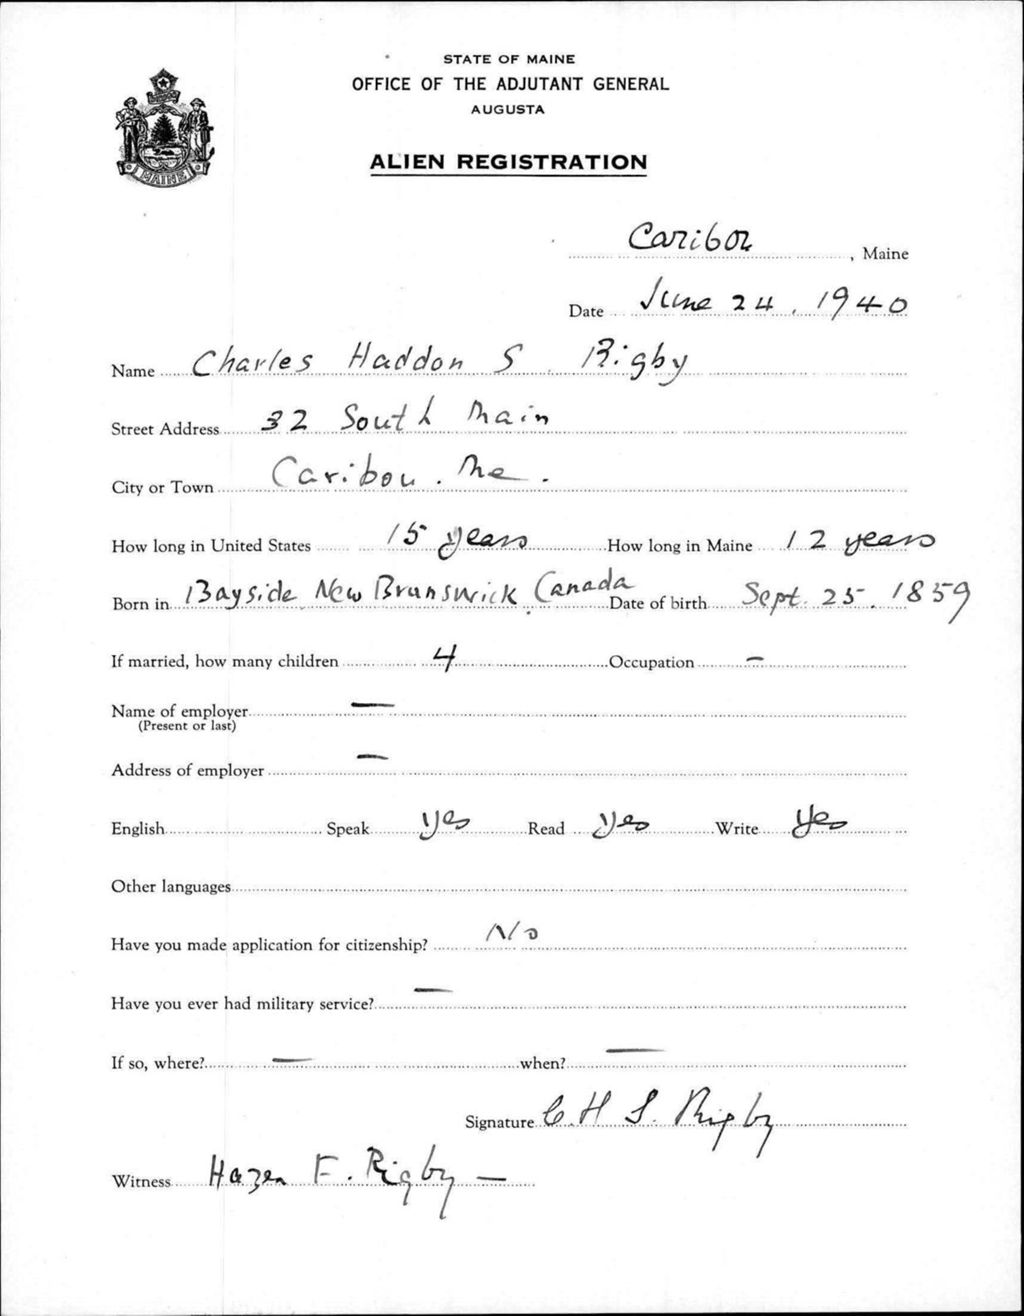 STATE OF MAINE
OFFICE OF THE ADJUTANT GENERAL
AUGUSTA
ALIEN REGISTRATION
MAINE
Caribou, Maine
Date June 24, 1940
Name Charles Haddon S Rigby
Street Address 32 South Main
City or Town Caribou. Me.
How long in United States 15 years How long in Maine 12 years
Born in Bayside, New Brunswick, Canada Date of birth Sept. 25, 1859
If married, how many children 4 Occupation –
Name of employer —
(Present or last)
Address of employer —
English Speak yes Read yes Write yes
Other languages
Have you made application for citizenship? No
Have you ever had military service? —
If so, where? — when? —
Signature C. H. S. Rigby
Witness Hazen F. Rigby —